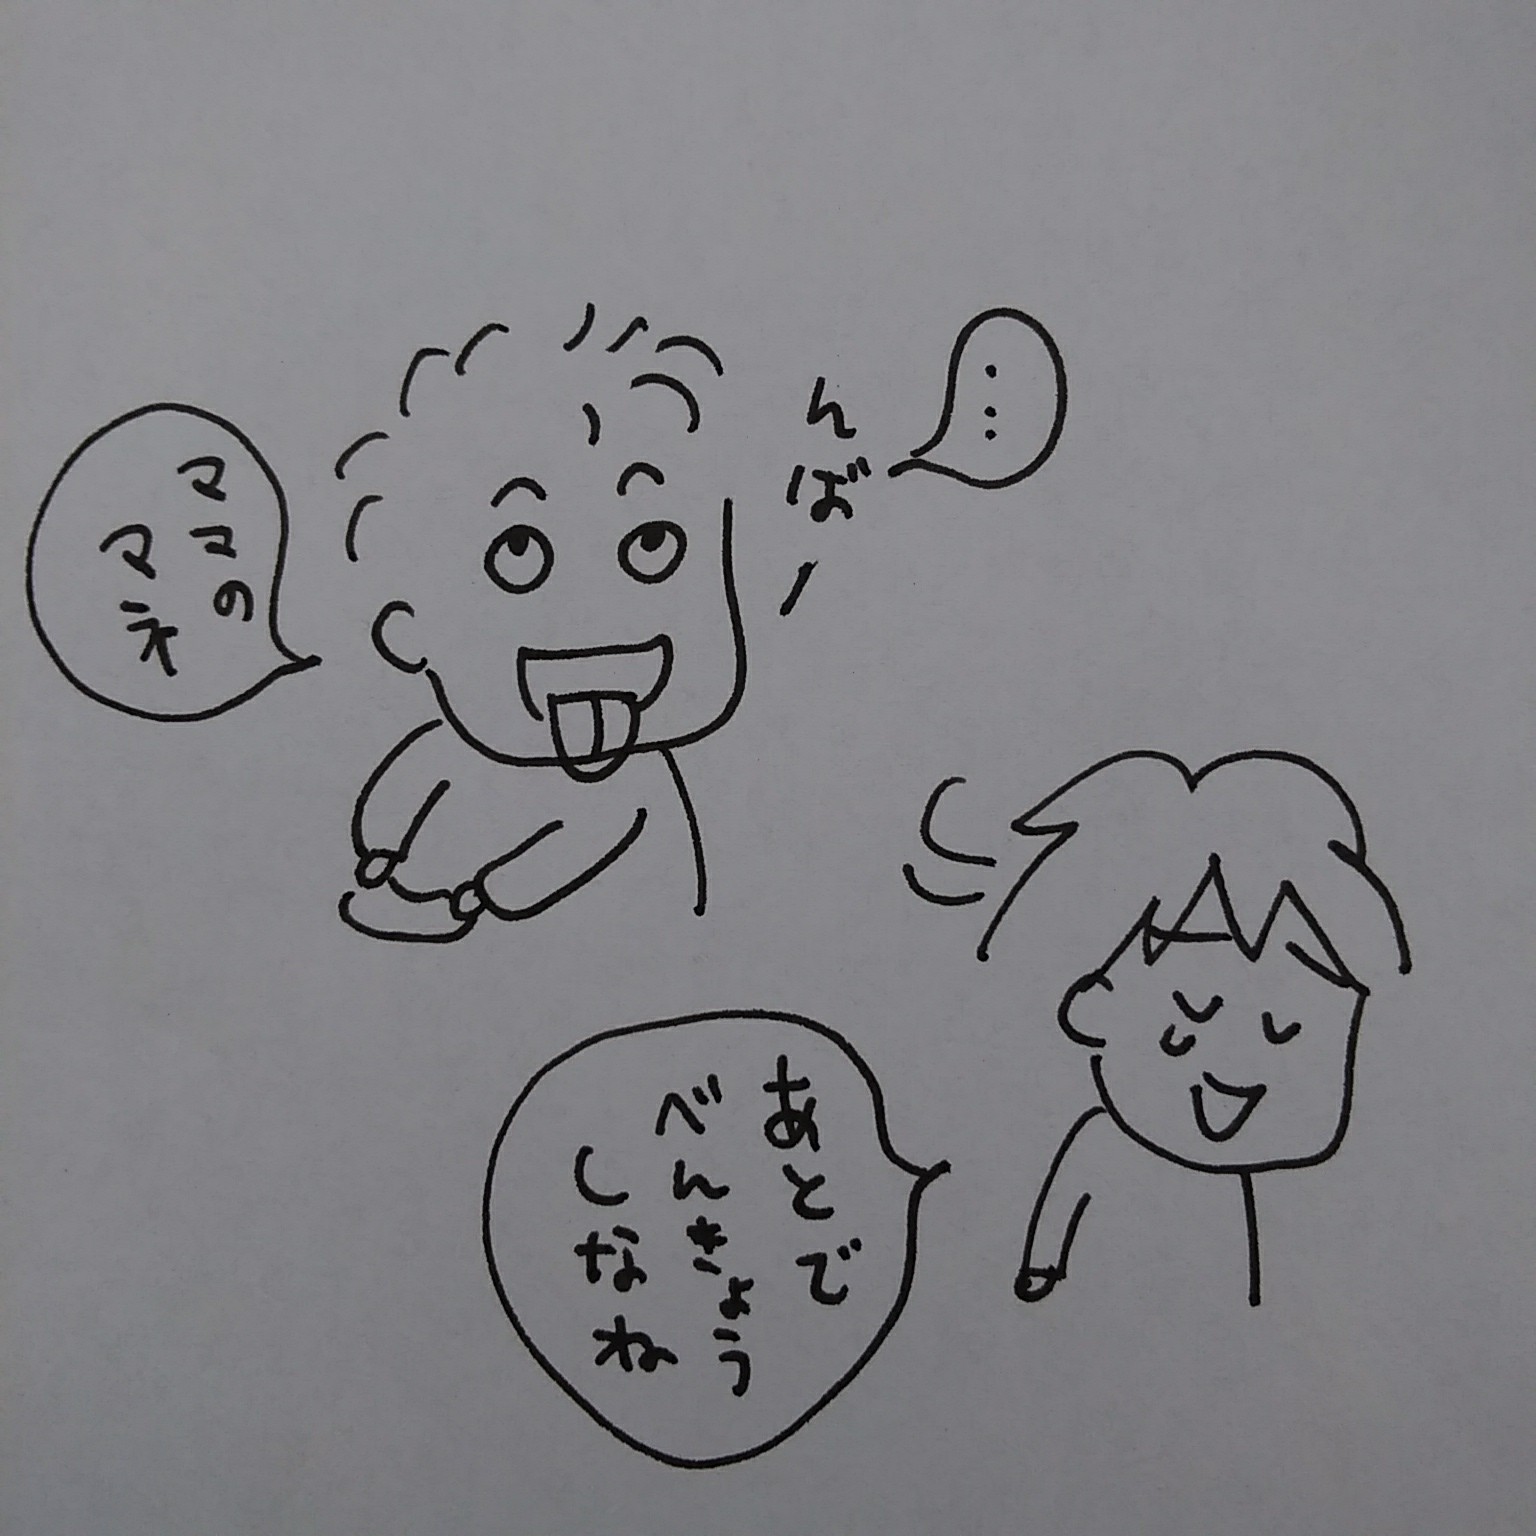 …
んばー
ママの
マネ
あとで
べんきょう
しなね